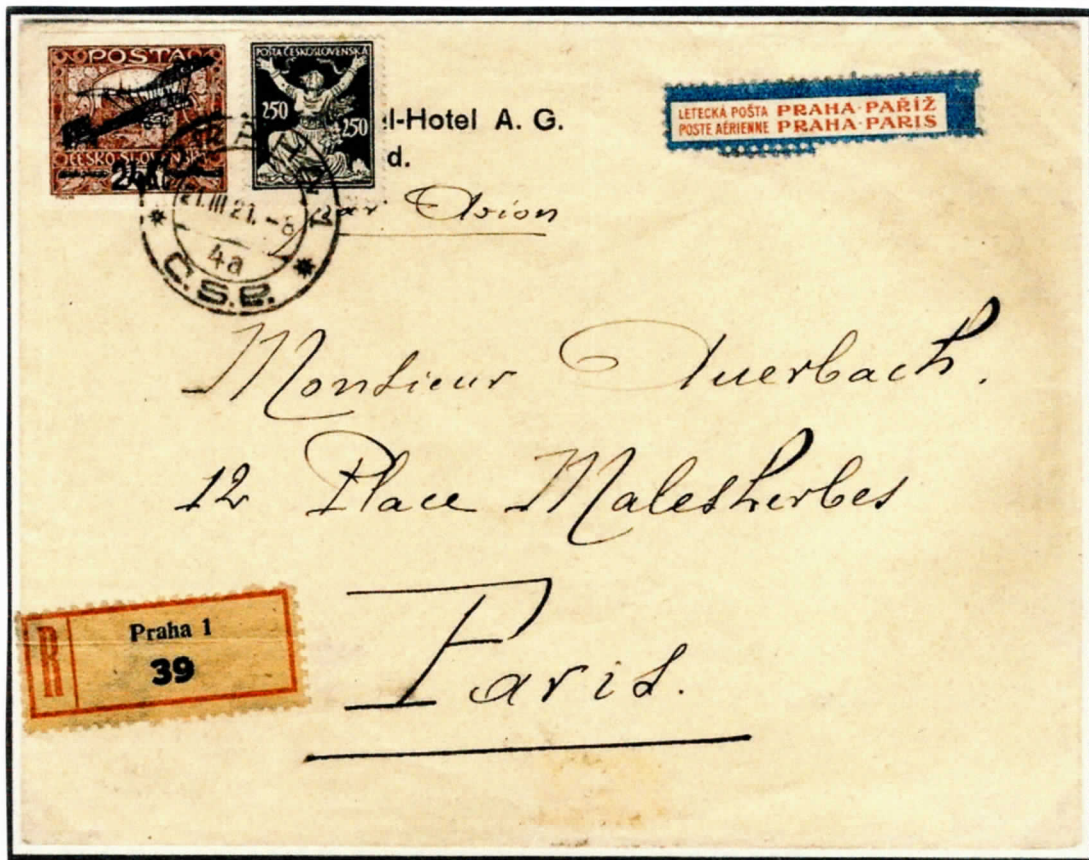 POSTA
ČESKO-SLOVENSKÁ
24K
POŠTA ČESKOSLOVENSKÁ
250 250
l-Hotel A. G.
d.
par Avion
LETECKÁ POŠTA PRAHA-PAŘÍŽ
POSTE AÉRIENNE PRAHA-PARIS
1
21.III.21.-8
4a
* Č.S.P. *
Monsieur Auerbach.
12 Place Malesherbes
Paris.
R
Praha 1
39